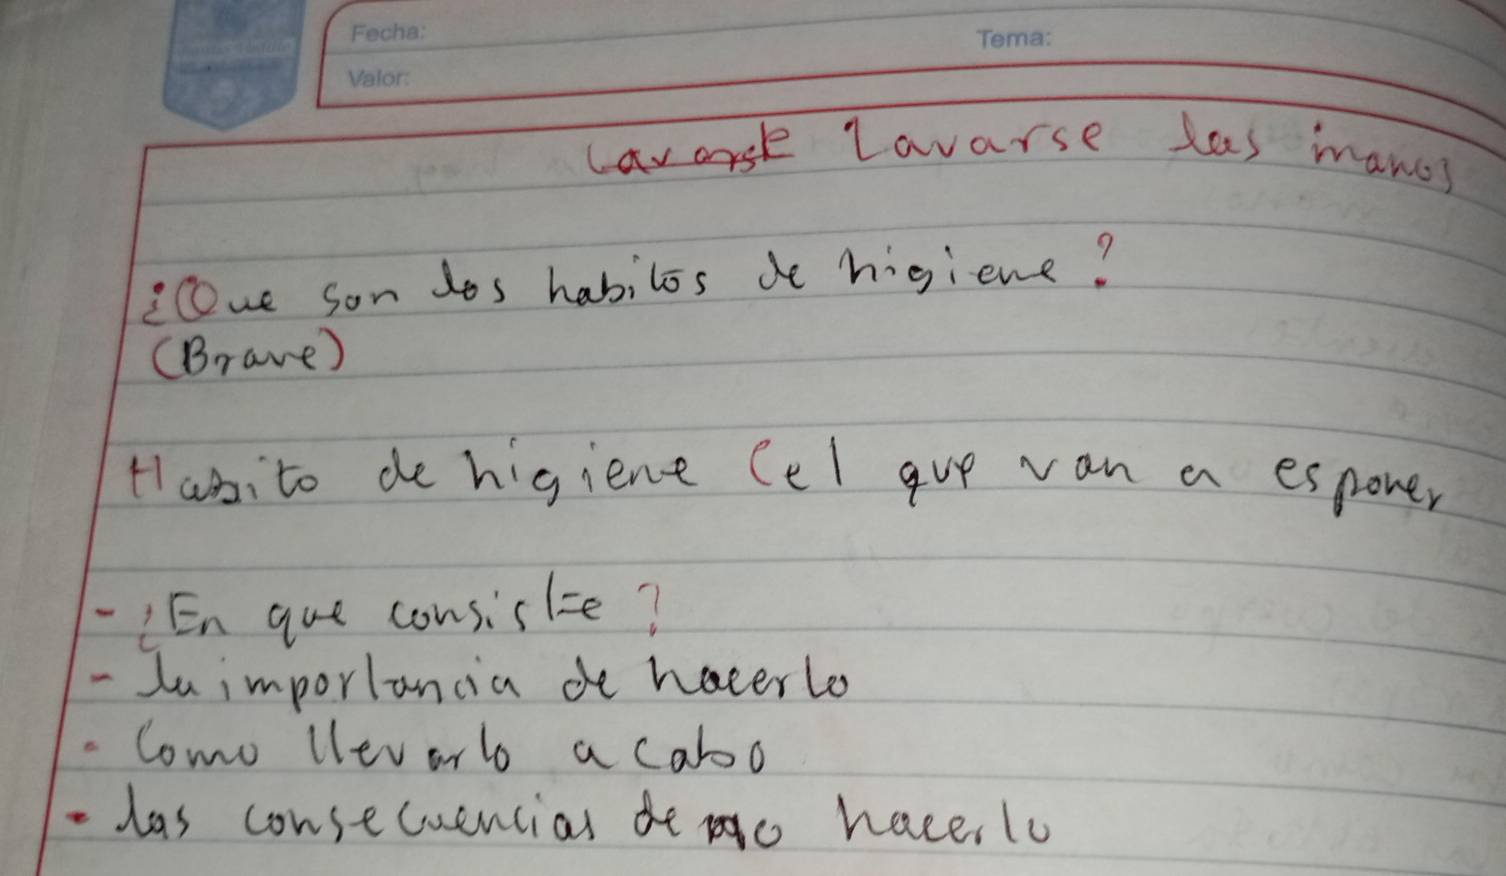 Fecha:
Tema:
Valor:
Lavarse las manos
¿Que son los habitos de higiene?
(Brave)
Habito de higiene (el que van a esponer
- ¿En que consiste?
- La importancia de hacerlo
- Como llevarlo a cabo
- las consecuencias de no hacerlo